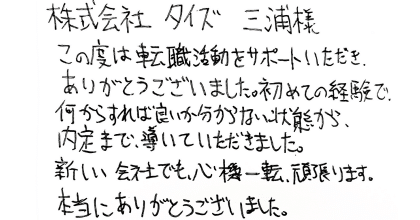 株式会社 タイズ 三浦様
この度は転職活動をサポートいただき、
ありがとうございました。初めての経験で、
何からすれば良いか分からない状態から、
内定まで、導いていただきました。
新しい会社でも、心機一転、頑張ります。
本当にありがとうございました。